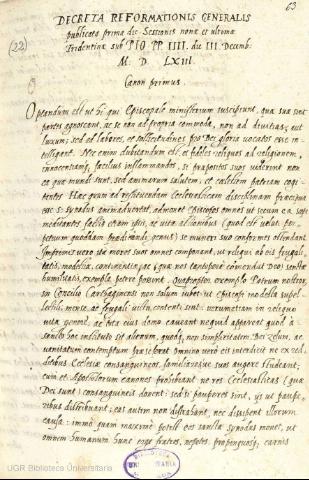 63
(22)
DECRETA REFORMATIONIS GENERALIS
publicata prima die Sessionis nonæ et ultimæ
Tridentinæ sub PIO PP IIII. die III. Decemb.
M. D. LXIII.
Canon primus
Optandum est ut hi qui Episcopale ministerium suscipiunt, quæ suæ sint
partes agnoscant, ac se non ad propria commoda, non ad divitias, aut
luxum; sed ad labores, et sollicitudines pro Dei gloria vocatos esse in-
telligant. Nec enim dubitandum est, et fideles reliquos ad religionem,
innocentiamq. facilius inflammandos, si præpositos suos viderint non
ea quæ mundi sunt, sed animarum salutem, et cælestem patriam cogi-
tantes. Hæc cum ad restituendam Ecclesiasticam disciplinam præcipua
esse S. Synodus animadvertat, admonet Episcopos omnes ut secum ea sæpe
meditantes, factis etiam ipsis, ac vitæ actionibus (quod est veluti per-
petuum quoddam prædicandi genus) se muneri suo conformes ostendant.
Imprimis vero ita mores suos omnes componant, ut reliqui ab eis frugali-
tatis, modestiæ, continentiæ, ac quæ nos tantopere commendat Deo sanctæ
humilitatis, exempla petere possint. Quapropter exemplo Patrum nostror.
in Concilio Carthaginensi non solum iubet ut Episcopi modesta supel-
lectili, mensa, ac frugali victu contenti sint: verumetiam in reliquo
vitæ genere, ac tota eius domo caveant ne quid appareat quod a
sancto hoc instituto sit alienum, quodq. non simplicitatem, Dei zelum, ac
vanitatum contemptum præ se ferat. Omnino vero eis interdicit ne ex red-
ditibus Ecclesiæ consanguineos, familiaresve suos augere studeant;
cum et Apostolorum canones prohibeant ne res Ecclesiasticas (quæ
Dei sunt) consanguineis donent: sed si pauperes sint, iis ut paupe-
ribus distribuant; eas autem non distrahant, nec dissipent illorum
causa: immo quam maxime potest eos sancta Synodus monet, ut
omnem humanum hunc erga fratres, nepotes, propinquosq. carnis
BIBLIOTECA
UNIVERSITARIA
UGR Biblioteca Universitaria